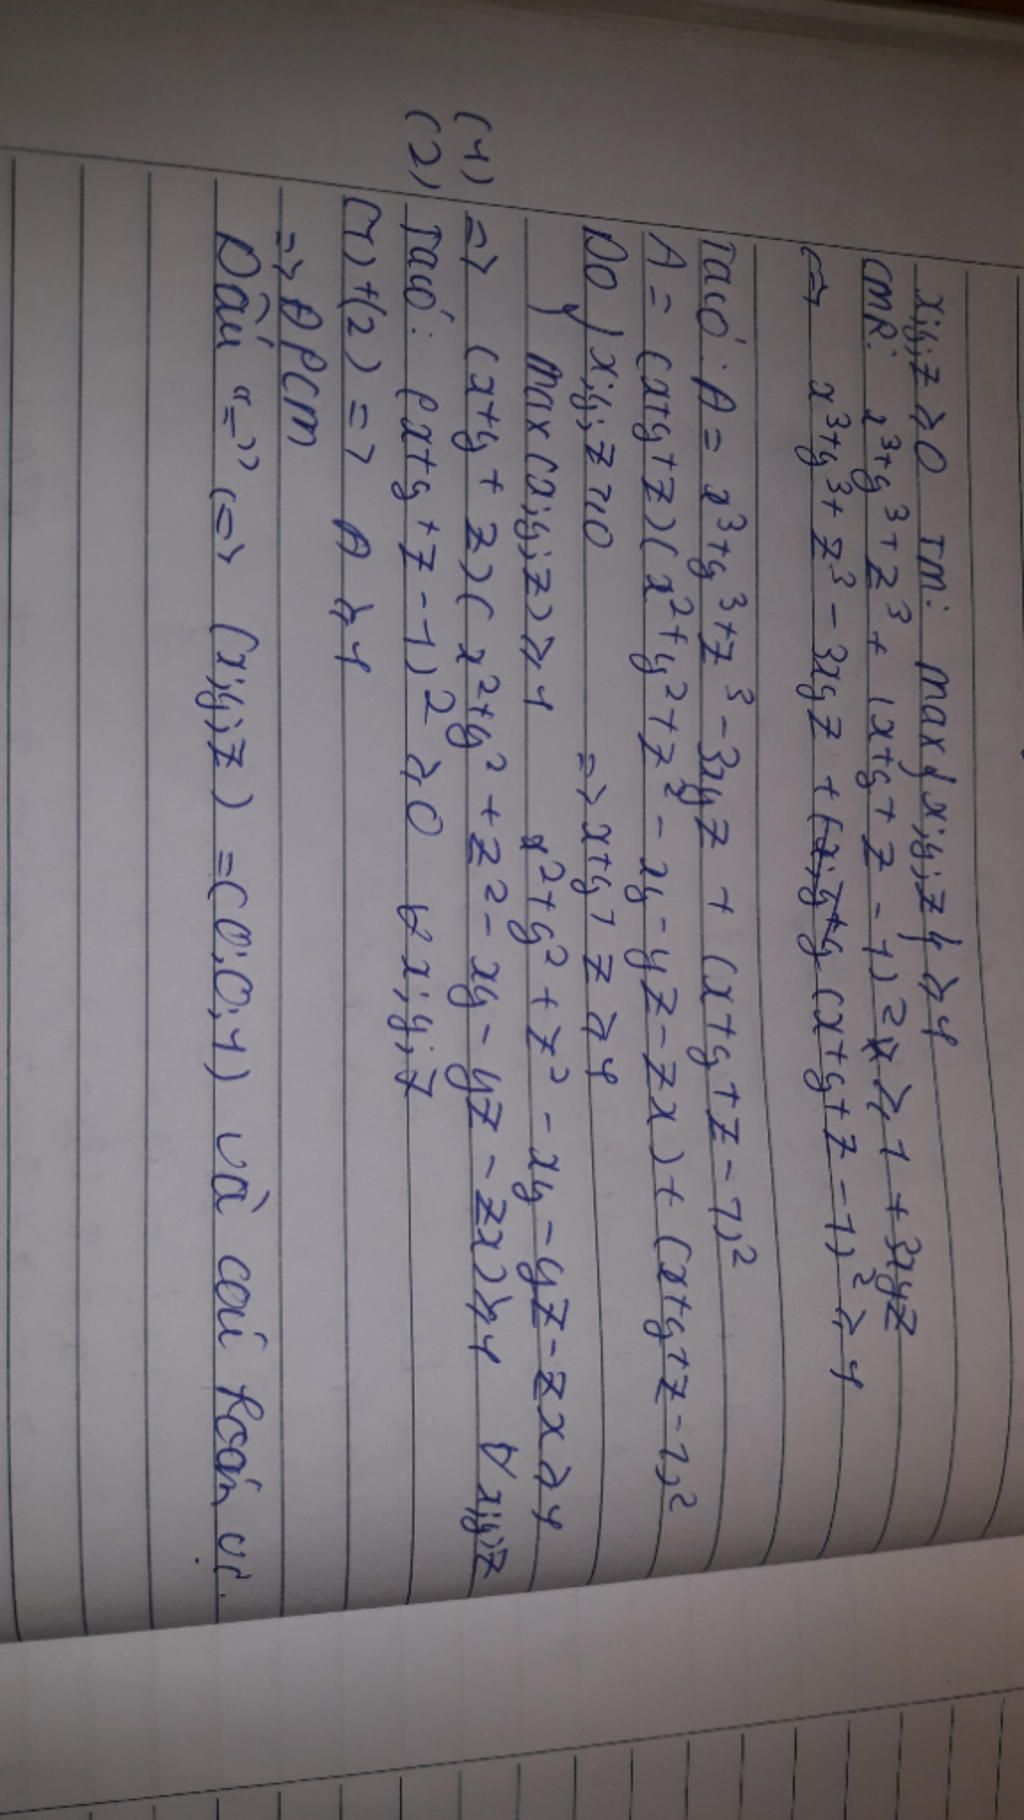 x;y;z ≥ 0 TM: max{x;y;z} ≥ 1
CMR: x³+y³+z³ + (x+y+z-1)² ≥ 1 + 3xyz
<=> x³+y³+z³ - 3xyz + (x+y+z-1)² ≥ 1
Ta có: A = x³+y³+z³ - 3xyz + (x+y+z-1)²
A = (x+y+z)(x²+y²+z² - xy - yz - zx) + (x+y+z-1)²
Do { x;y;z ≥ 0 => x+y+z ≥ 1
max(x;y;z) ≥ 1 x²+y²+z² - xy - yz - zx ≥ 1
(1) => (x+y+z)(x²+y²+z² - xy - yz - zx) ≥ 1 ∀ x;y;z
(2) Ta có: (x+y+z-1)² ≥ 0 ∀ x;y;z
(1)+(2) => A ≥ 1
=> ĐPCM
Dấu "=" <=> (x;y;z) = (0;0;1) và các hoán vị.